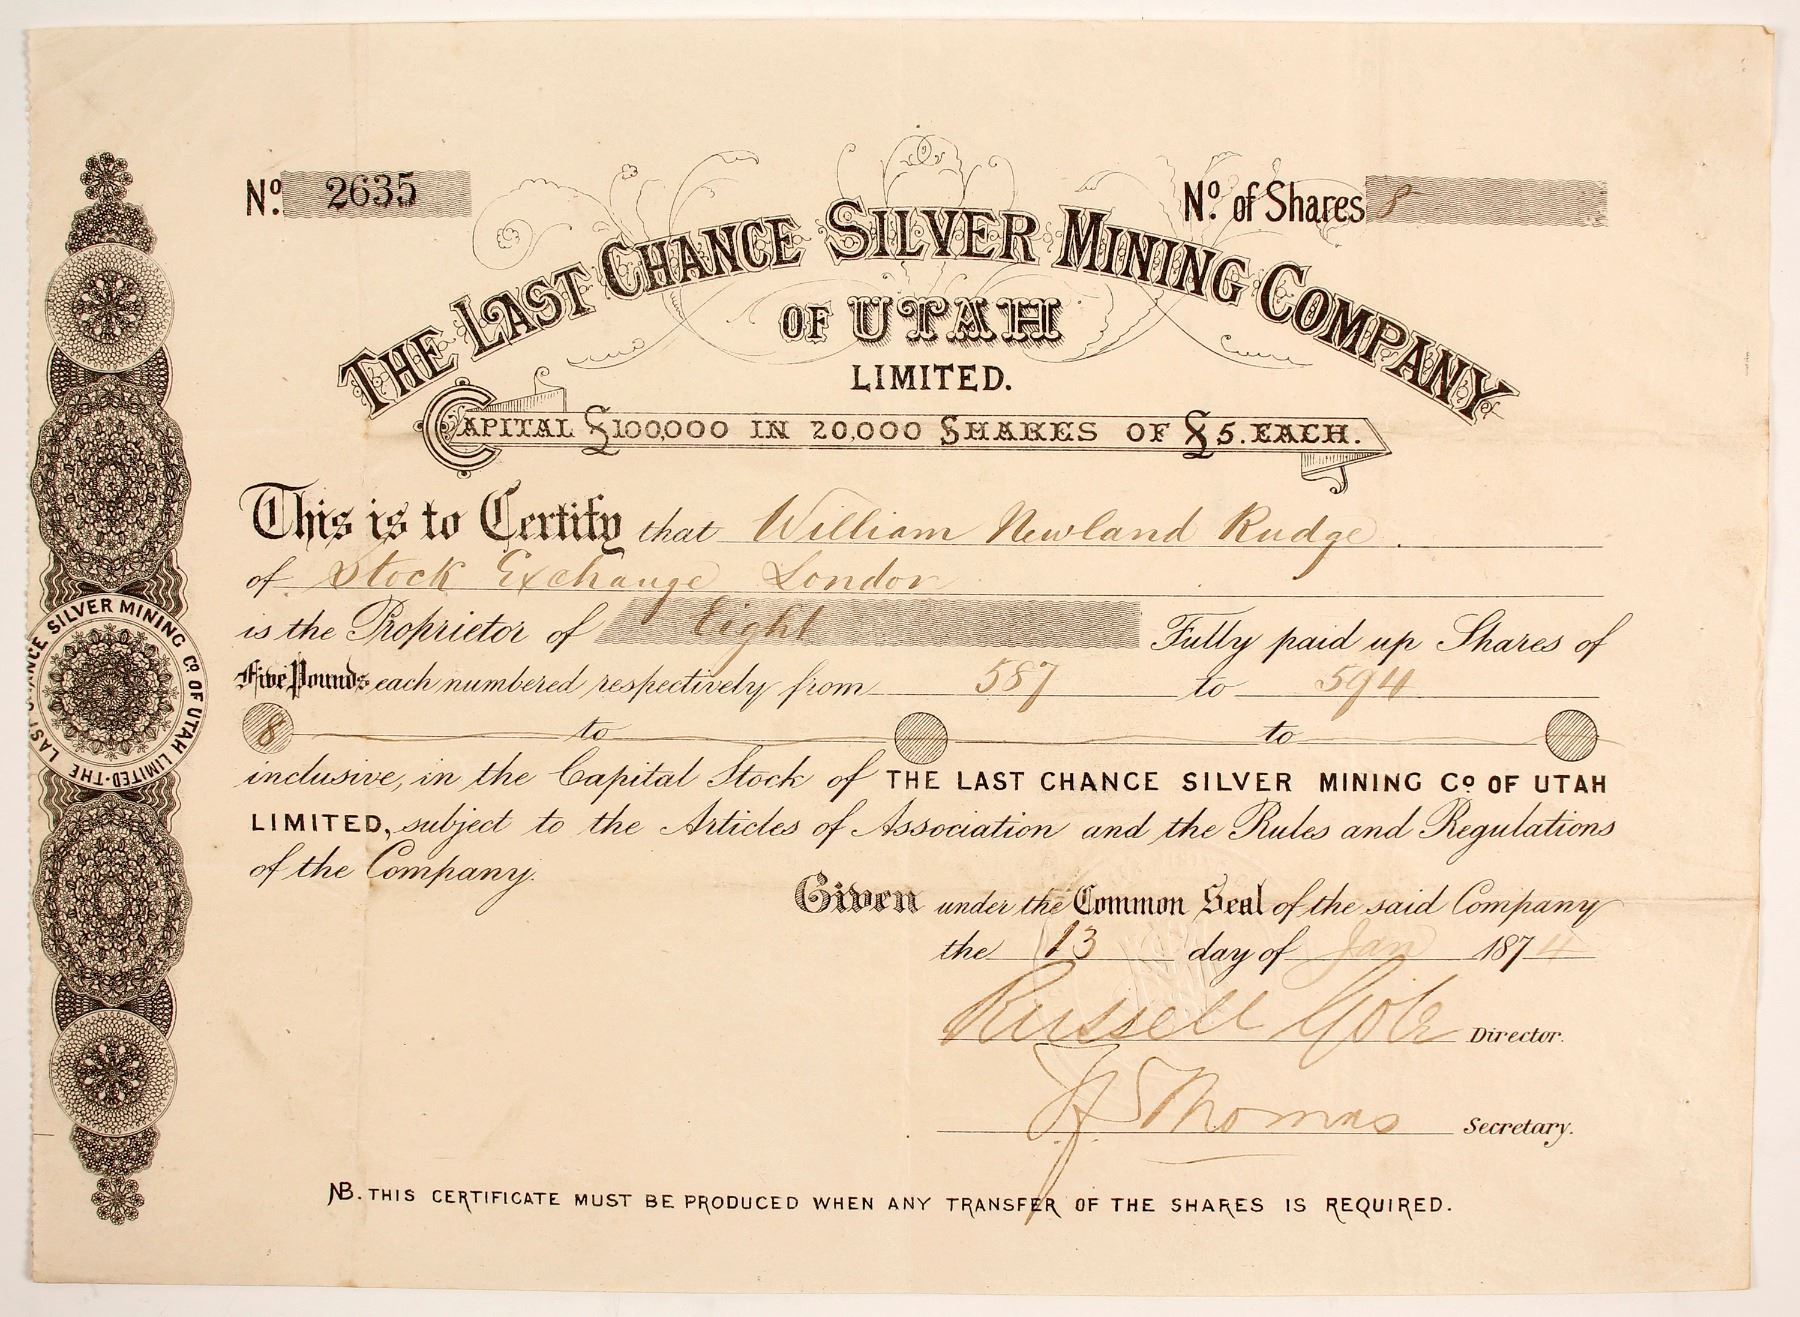 No. 2635
No. of Shares 8
THE LAST CHANCE SILVER MINING COMPANY
OF UTAH
LIMITED.
CAPITAL £100,000 IN 20,000 SHARES OF £5. EACH.
This is to Certify that William Newland Rudge.
of Stock Exchange London
is the Proprietor of Eight Fully paid up Shares of
Five Pounds each numbered respectively from 587 to 594
8 to to
inclusive, in the Capital Stock of THE LAST CHANCE SILVER MINING Co. OF UTAH
LIMITED, subject to the Articles of Association and the Rules and Regulations
of the Company.
Given under the Common Seal of the said Company
the 13 day of Jan 1874
Russell Director.
Thomas Secretary.
NB. THIS CERTIFICATE MUST BE PRODUCED WHEN ANY TRANSFER OF THE SHARES IS REQUIRED.
THE LAST CHANCE SILVER MINING Co. OF UTAH LIMITED